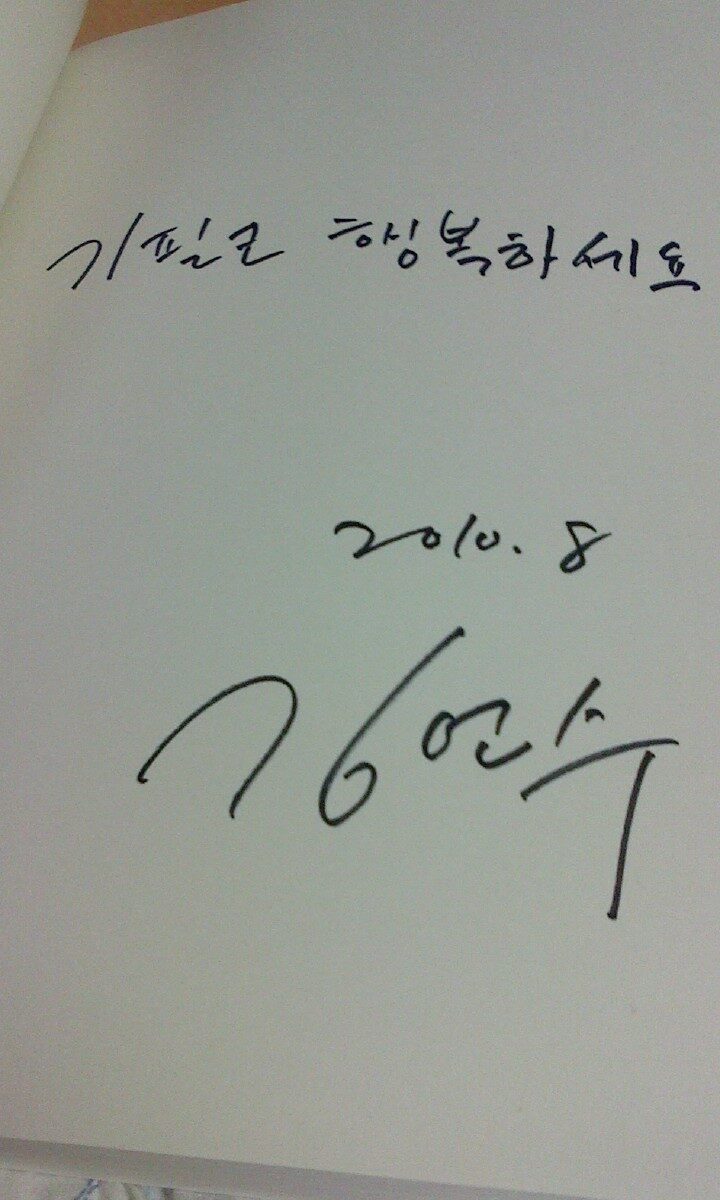 기필코 행복하세요
2010. 8
김연수